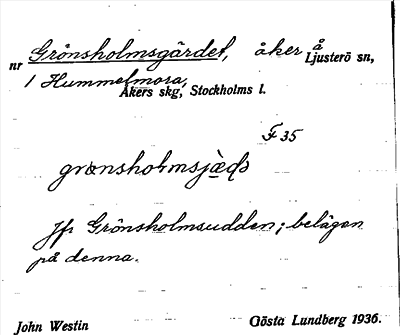 Grönsholmsgärdet, åker å
nr Ljusterö sn,
1 Hummelmora,
Åkers skg, Stockholms l.
F 35
Jfr Grönsholmsudden; belägen
på denna.
John Westin Gösta Lundberg 1936.